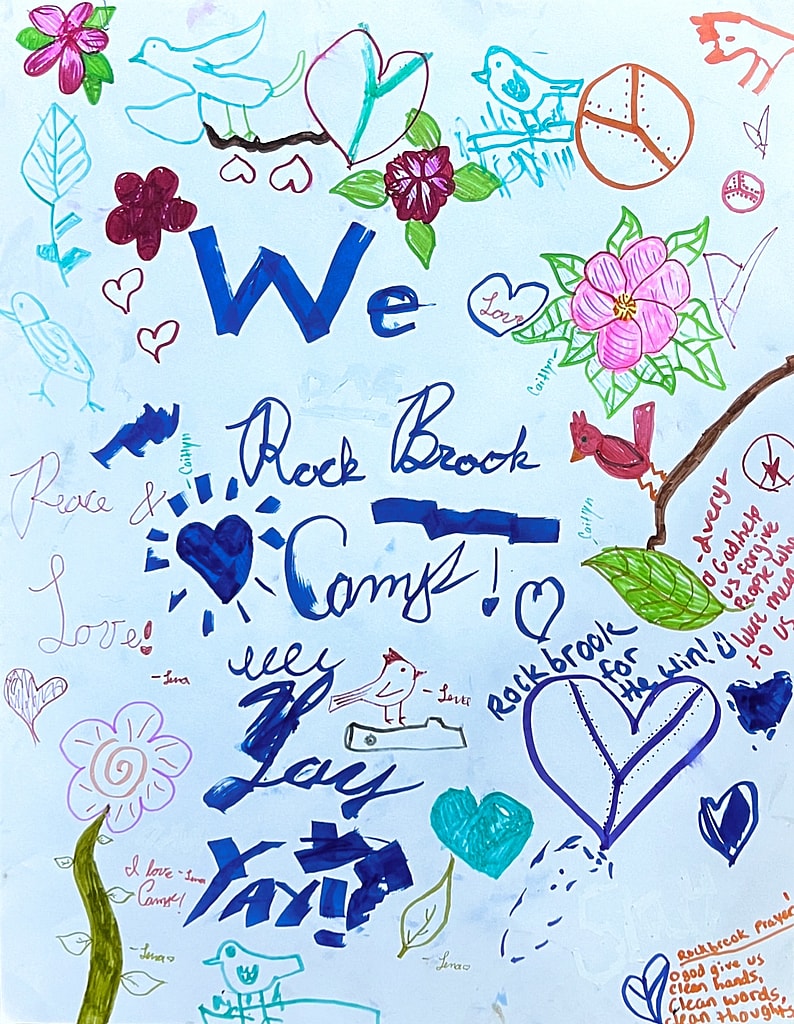 We
Love
Caitlyn
Rock Brook
Caitlyn
Peace &
Caitlyn
Camp!
-Avery
O God help
us forgive
People who
were mean
to us
Love!
-Lena
Rockbrook
for
the win!
-Lena
Yay
Yay!!
I love -Lena
Camp!
-Lena
-Lena
Rockbrook Prayer!
O god give us
clean hands,
clean words,
clean thoughts